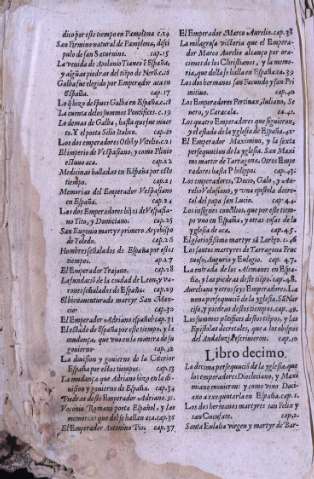 dico por este tiempo en Pamplona c.14
San Fermino natural de Pamplona, disci
pulo de san Saturnino. cap.15
La venida de Antonio Tianeo a España,
y algunas piedras del tiempo de Nero. c.16
Galba fue elegido por Emperador aca en
España. cap.17
Lo q̃ hizo despues Galba en España. c.18
La cuenta de los summos Pontifices. c.19
Lo demas de Galba, hasta que fue muer
to. Y el poeta Silio Italico. cap.20
Los dos emperadores Othõ y Vitelio. c.21
El imperio de Vespasiano, y como Plinio
estuuo aca. cap.22
Medicinas halladas en España por este
tiempo. cap.23
Memorias del Emperador Vespasiano
en España. cap.24
Los dos Emperadores hijos de Vespasia
no, Tito, y Domiciano. cap.25
San Eugenio martyr primero Arçobispo
de Toledo. cap.26
Hombres señalados de España por este
tiempo. cap.27
El Emperador Trajano. cap.28
La fundacion de la ciudad de Leon, y va
rones señalados de España. cap.29
El bienauenturado martyr San Man-
cio cap.30
El Emperador Adriano español. cap.31
El estado de España por este tiempo, y la
mudança, que vuo en la manera de su
gouierno cap.32
La diuision y gouierno de la Citerior
España por estos tiempos. cap.33
La mudança que Adriano hizo en la di-
uision y gouierno de España. cap.34
Piedras de este Emperador Adriano. 35
Voconio Romano poeta Español, y las
memorias que del se hallan aca. cap.36
El Emperador Antonino Pio. cap.37
El Emperador Marco Aurelio. cap.38
La milagrosa victoria que el Empera-
dor Marco Aurelio alcanço por ora
ciones de los Christianos, y la memo
ria, que della se halla en España. ca.39
Los dos martyres san Facundo y Pri
mitiuo. cap.40
Los Emperadores Pertinax, Iuliano, Se
uero, y Caracala. cap.41
Los quatro Emperadores que siguieron,
y el estado de la yglesia de España. 42
El Emperador Maximino, y la sexta
persequucion de la yglesia. San Maxi
mo martyr de Tarragona. Otros Empe
radores hasta Philippo. cap.43
Los emperadores, Decio, Galo, y Aure-
lio Volusiano, y vna epistola decre-
tal del papa san Lucio. cap.44
Los insignes concilios, que por este tiempo
vuo en España, y otras cosas de la
yglesia de aca. cap.45
El gloriosissimo martyr sã Lorẽço. c.46
Los santos martyres de Tarragona Fruc
tuoso, Augurio y Eulogio. cap.47
La entrada de los Alemanes en Espa-
ña, y las piedras deste tiempo. cap.48
Aureliano y otros seys Emperadores. La
nona persequucion de la yglesia. S. Nar
ciso, y piedras destos tiempos. cap.49
Los summos põtifices destos tiẽpos, y las
Epistolas decretales, que a los obispos
del Andaluzia escriuieron. cap.50
Libro decimo.
La decima persequuciõ de la yglesia, que
los emperadores Diocleciano, y Maxi
miano mouieron: y como vino Da-
ciano a executarla en España. cap.1
Los dos hermanos martyres san Felix y
san Cucufate. cap.2
Santa Eulalia virgen y martyr de Bar-